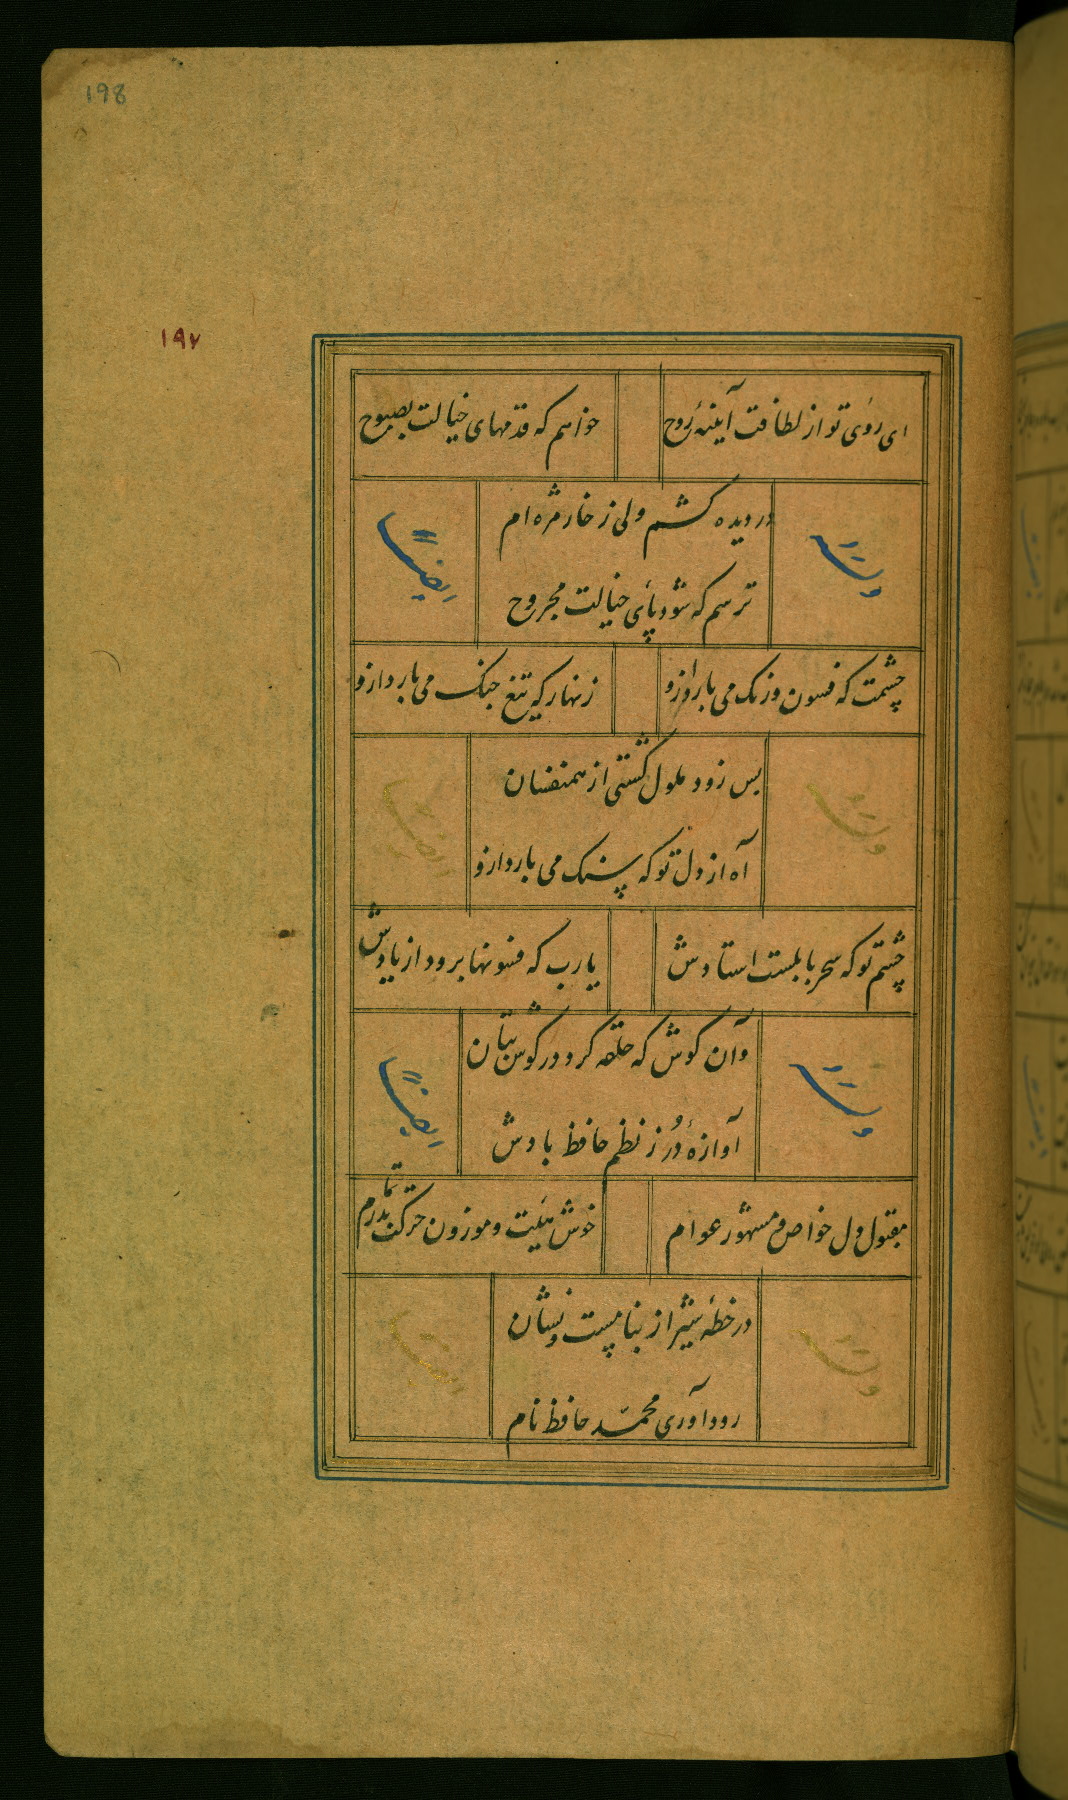 198
۱۹۷
ای روی تو از لطافت آیینهٔ روح
خواهم که قدمهای خیالت بصبوح
در دیده کشم ولی ز خار مژه ام
وله
ایضاً
ترسم که شود پای خیالت مجروح
چشمت که فسون و رنک می بارد ازو
زنهار که تیغ جنک می بارد ازو
بس زود ملول گشتی از همنفسان
وله
ایضاً
آه از دل تو که سنک می بارد ازو
چشم تو که سحر بابلست استادش
یارب که فسونها برود از یادش
وآن گوش که حلقه کرد در گوش بتان
وله
ایضاً
آوازهٔ دُر ز نظم حافظ بادش
مقبول دل خواص و مشهور عوام
خوش هیئت و موزون حرکت بدر تمام
در خطهٔ شیراز بنام است و نشان
وله
ایضاً
رودآوری محمّد حافظ نام